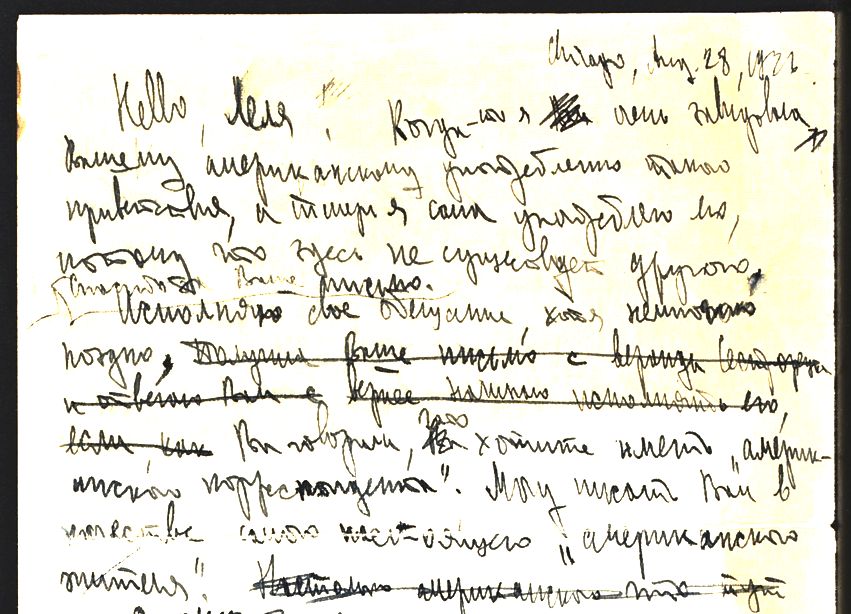 Chicago, Aug. 28, 1922
Hello, Леля, Когда-то я очень завидовала
Вашему американскому употреблению такого
приветствия, а теперь я сама употребляю его,
потому что здесь не существует другого.
Спасибо за Ваше письмо.
Исполняю свое обещание, хотя немного
поздно, Получила Ваше письмо с веранды
и отвечаю Вам с вернее начинаю исполнять его,
если как Вы говорили, что хотите иметь „америк-
анского корреспондента". Могу писать Вам в
качестве самого настоящего „американского
жителя". американского что тут